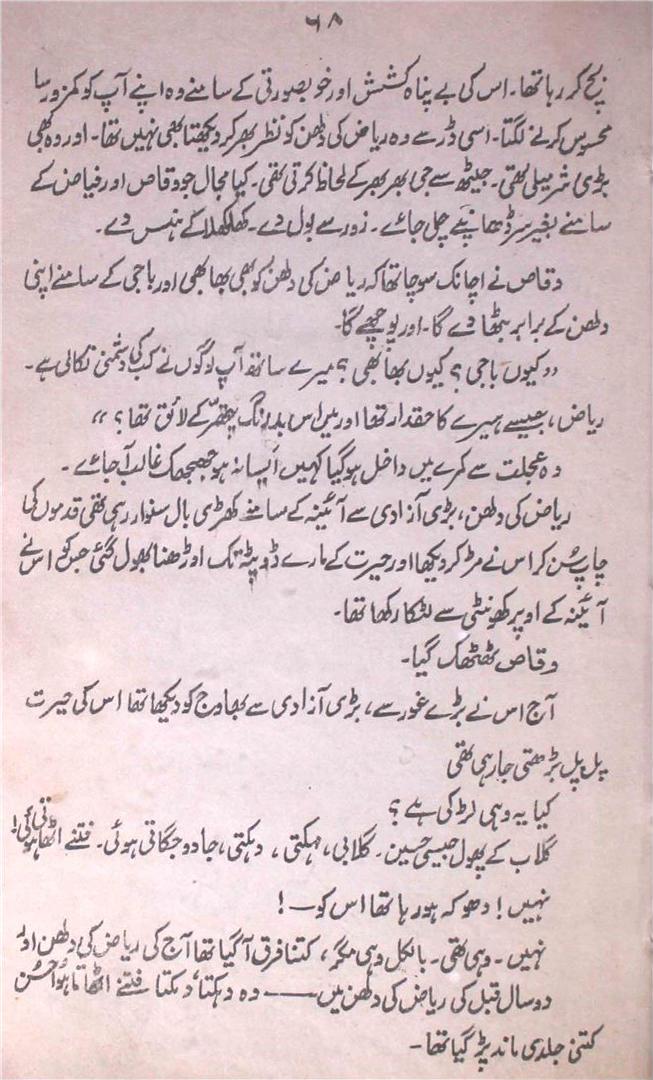 ۶۸
پچ کر رہا تھا۔ اس کی بے پناہ کشش اور خوبصورتی کے سامنے وہ اپنے آپ کو کمزور سا
محسوس کرنے لگتا۔ اسی ڈر سے وہ ریاض کی دلھن کو نظر بھر کر دیکھتا بھی نہیں تھا۔ اور وہ بھی
بڑی شرمیلی تھی۔ جیٹھ سے جی بھر بھر کے لحاظ کرتی تھی۔ کیا مجال جو وقاص اور فیاض کے
سامنے بغیر سر ڈھانپے چل جائے۔ زور سے بول دے۔ کھلکھلا کے ہنس دے۔
وقاص نے اچانک سوچا تھا کہ ریاض کی دلھن کو بھی بھابھی اور باجی کے سامنے اپنی
دلھن کے برابر بٹھا دے گا۔ اور پوچھے گا۔
“کیوں باجی؟ کیوں بھابھی؟ میرے ساتھ آپ لوگوں نے کب کی دشمنی نکالی ہے۔
ریاض، جیسے ہیرے کا حقدار تھا اور میں اس بدرنگ پتھر کے لائق تھا؟“
وہ عجلت سے کمرے میں داخل ہوگیا کہیں ایسا نہ ہو جھجھک غالب آجائے۔
ریاض کی دلھن، بڑی آزادی سے آئینہ کے سامنے کھڑی بال سنوار رہی تھی قدموں کی
چاپ سُن کر اس نے مڑ کر دیکھا اور حیرت کے مارے ڈوپٹہ تک اوڑھنا بھول گئی جس کو اس نے
آئینہ کے اوپر کھونٹی سے لٹکا رکھا تھا۔
وقاص ٹھٹھک گیا۔
آج اس نے بڑے غور سے، بڑی آزادی سے بھاوج کو دیکھا تھا اس کی حیرت
پل پل بڑھتی جارہی تھی
کیا یہ وہی لڑکی ہے؟
گلاب کے پھول جیسی حسین۔ گلابی، مہکتی، دہکتی، جادو جگاتی ہوئی۔ فتنے اٹھاتی ہوئی!
نہیں! دھوکہ ہو رہا تھا اس کو—!
نہیں۔ وہی تھی۔ بالکل وہی مگر، کتنا فرق آگیا تھا آج کی ریاض کی دلھن اور
دو سال قبل کی ریاض کی دلھن میں—— وہ دہکتا دمکتا فتنے اٹھاتا ہوا حُسن
کتنی جلدی ماند پڑ گیا تھا۔